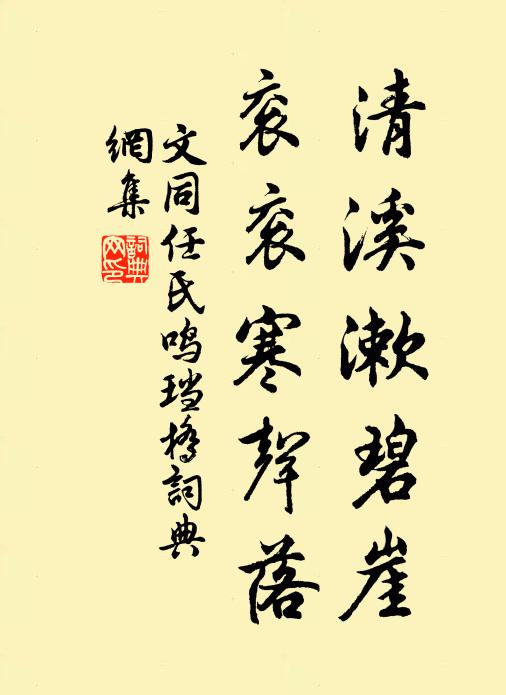 清溪漱碧崖
衮衮寒聲落
文同任民鸣珰橋詞典
網集
詞典网印